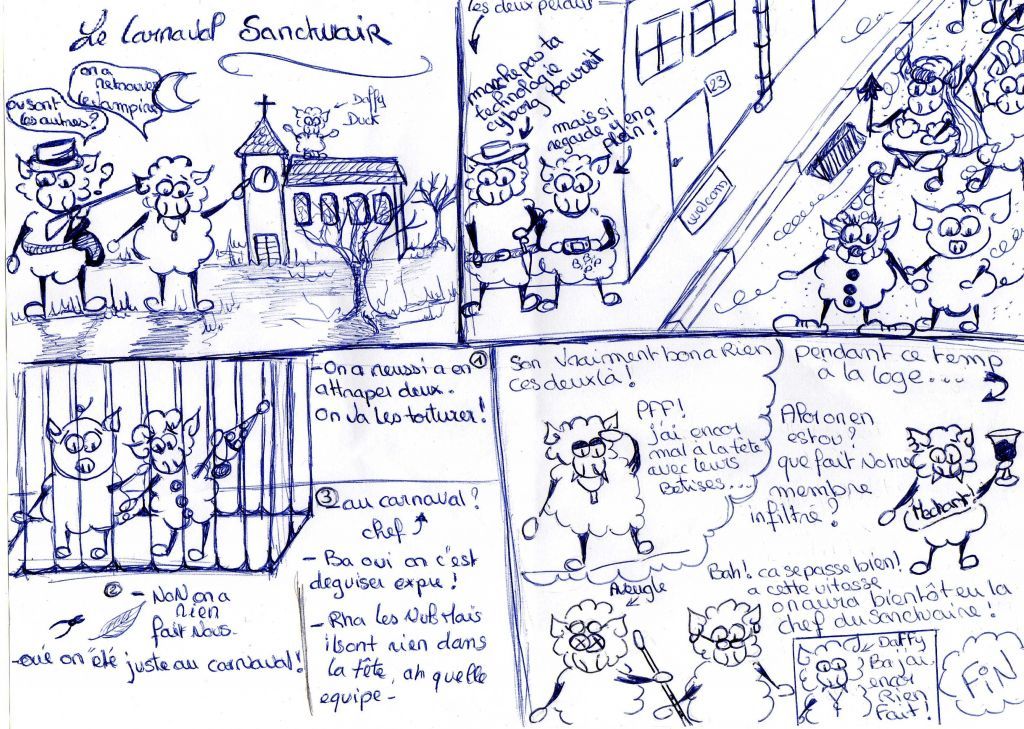 Le Carnaval Sanctuair
ou sont
les autres?
on a
retrouver
le vampire
?
Daffy
Duck
les deux perdus
marche pas ta
technologie
cyborg pourrit
mais si
regarde y en a
plein!
23
welcom
①
- On a reussi a en
attraper deux..
On va les torturer!
② - NON on a
rien
fait Nous.
- ouè on "été juste au carnaval!
③ au carnaval?
chef
- Ba oui on c'est
deguiser expre!
- Rha les Nuls Mais
ils ont rien dans
la tête, ah quelle
equipe -
Son Vraiment bon a Rien
ces deux là!
PFF!
j'ai encor
mal à la tête
avec leurs
Betises...
pendant ce temp
a la loge...
Alor on en
est ou?
que fait Notre
membre
infiltré?
Méchant!
Bah! ca se passe bien!
a cette vitesse
on aura bientôt eu la
chef du Sanctuaire!
Aveugle
Daffy
Ba j'ai
encor
Rien
Fait!
FIN